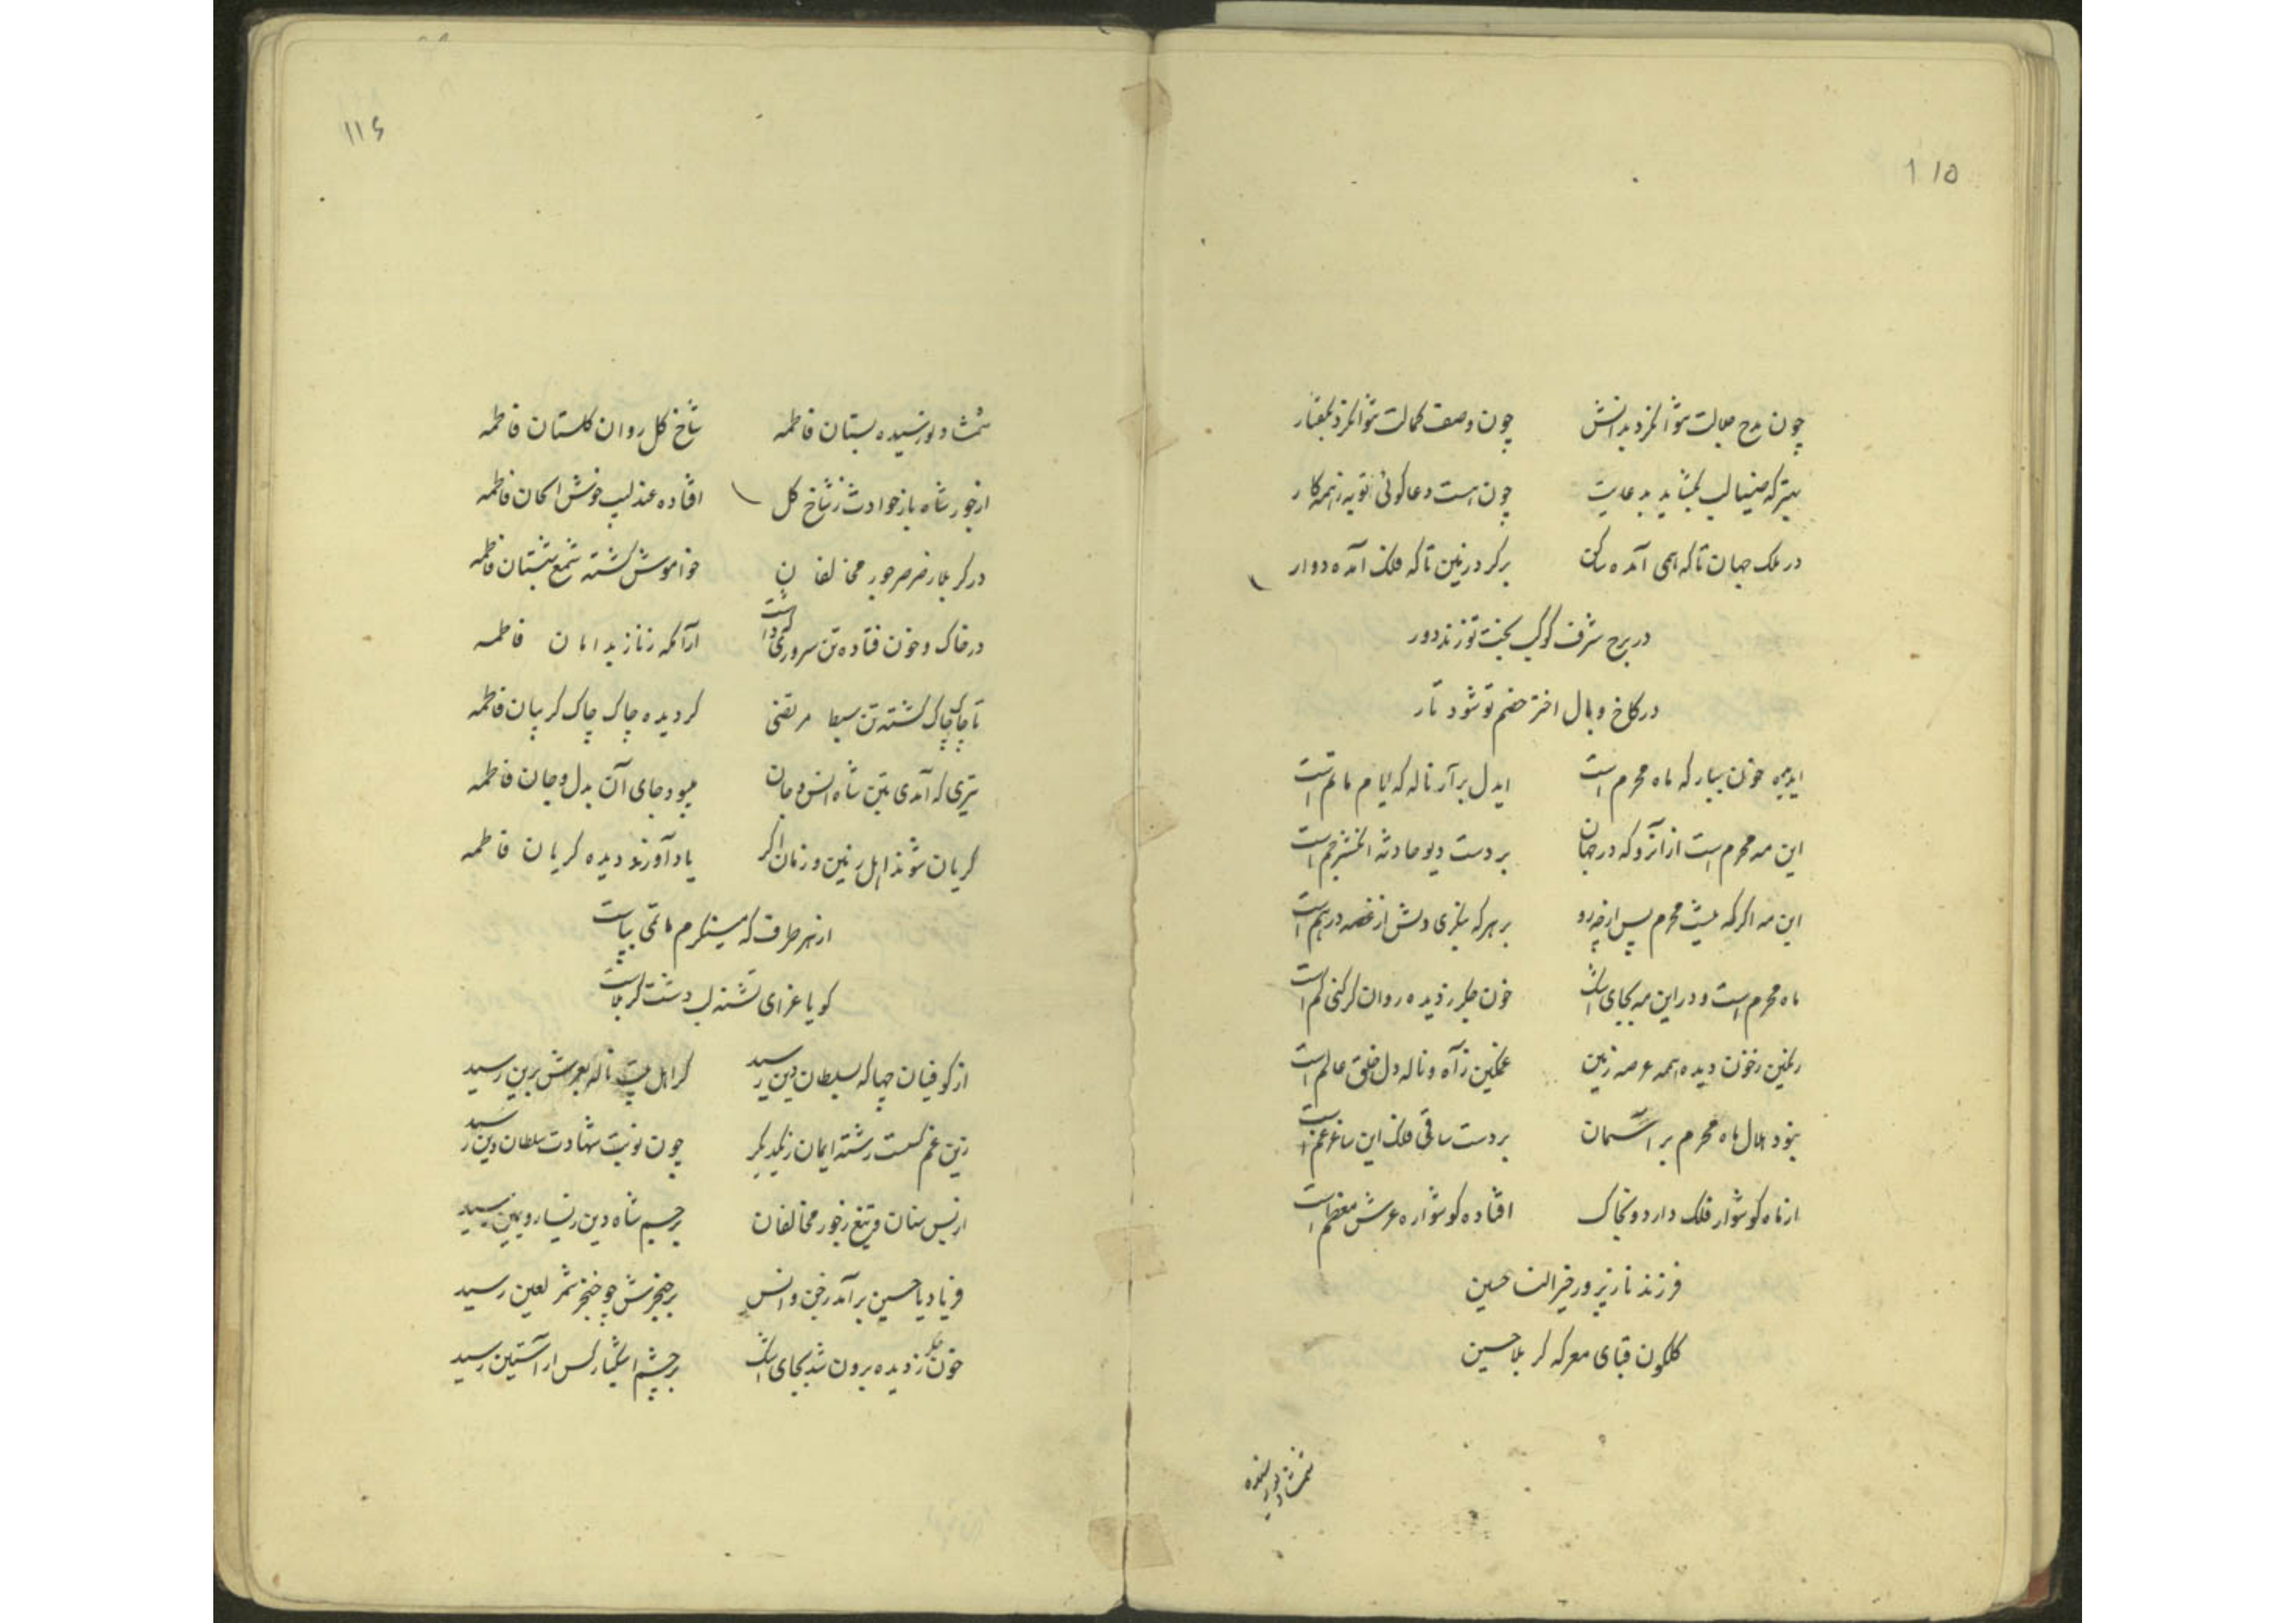 ۱۱۵
چون مدح جلالت نتوانم کرد بدانش چون وصف کمالت نتوانم کرد بگفتار
بهتر که ضیا لب بگشاید بدعایت چون هست دعا گوئی تو به ز همه کار
در ملک جهان تا که همی آمده ساکن بر گرد زمین تا که فلک آمده دوار
در برج شرف کوکب بخت تو زند دور
در کاخ وبال اختر خصم تو شود تار
ایدیده خون ببار که ماه محرم است ایدل برآر ناله که ایام ماتم است
این مه محرم است از آنرو که در جهان بر دست دیو حادثه انگشتر جم است
این مه اگر که نیست محرم پس از چه رو بر هر که بنگری دلش از غصه درهم است
ماه محرم است و در این مه بجای اشک خون جگر ز دیده روان گر کنی کم است
رنگین ز خون دیده همه عرصه زمین غمگین ز آه و ناله دل خلق عالم است
نبود هلال ماه محرم بر آسمان بر دست ساقی فلک این ساغر غم است
از ماه گوشوار فلک دارد و بخاک افتاده گوشواره عرش معظم است
فرزند نازپرور خیرالنسا حسین
گلگون قبای معرکه کربلا حسین
شمشاد نورسیده
۱۱۶
شمشاد نورسیده بستان فاطمه شاخ گل روان گلستان فاطمه
از جور شاه باز حوادث ز شاخ گل افتاده عندلیب خوش الحان فاطمه
در کربلا ز صرصر جور مخالفان خاموش گشته شمع شبستان فاطمه
در خاک و خون فتاده تن سروری که داشت آرامگه ز ناز بدامان فاطمه
تا چاک چاک گشته تن سبط مرتضی گردیده چاک چاک گریبان فاطمه
تیری که آمدی بتن شاه انس و جان میبود جای آن بدل و جان فاطمه
گریان شوند اهل زمین و زمان اگر یاد آورند دیده گریان فاطمه
از هر طرف که مینگرم ماتمی بپاست
گویا عزای تشنه لب دشت کربلاست
از کوفیان چها که بسلطان دین رسید کز اهل بیت ناله بعرش برین رسید
زین غم گسست رشته ایمان ز یکدیگر چون نوبت شهادت سلطان دین رسید
از بس سنان و تیغ ز جور مخالفان بر جسم شاه دین ز یسار و یمین رسید
فریاد یا حسین برآمد ز جن و انس بر حنجرش چو خنجر شمر لعین رسید
خون جگر ز دیده برون شد بجای اشک بر چشم اشکبار کس ار آستین رسید